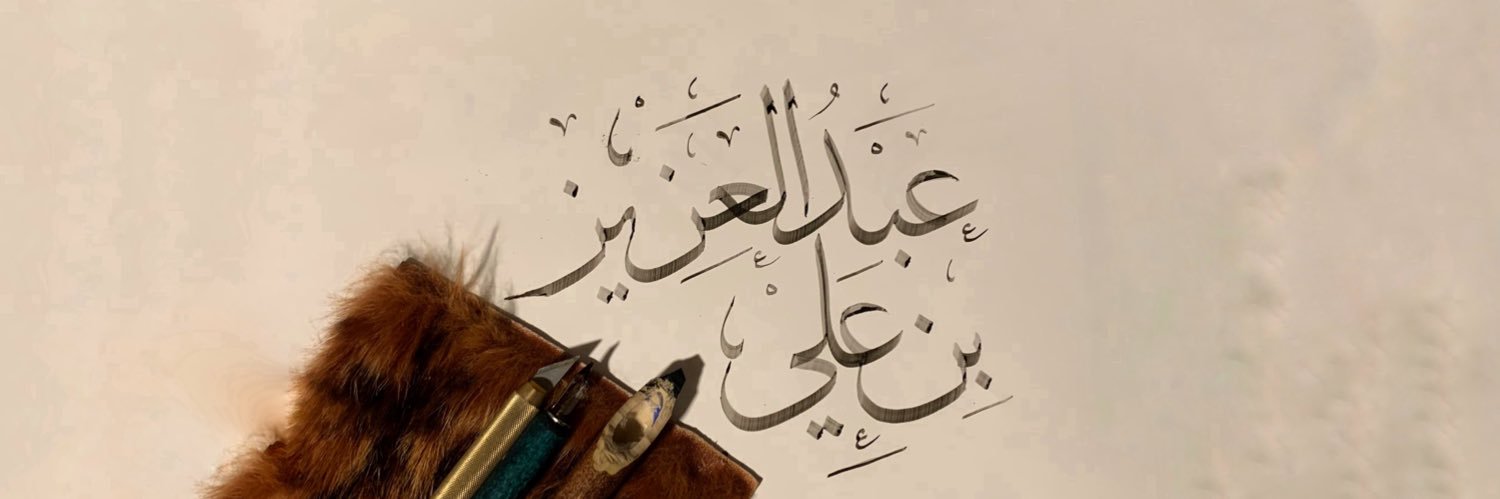 عَبْدُ العَزِيز
بِن عَلِي